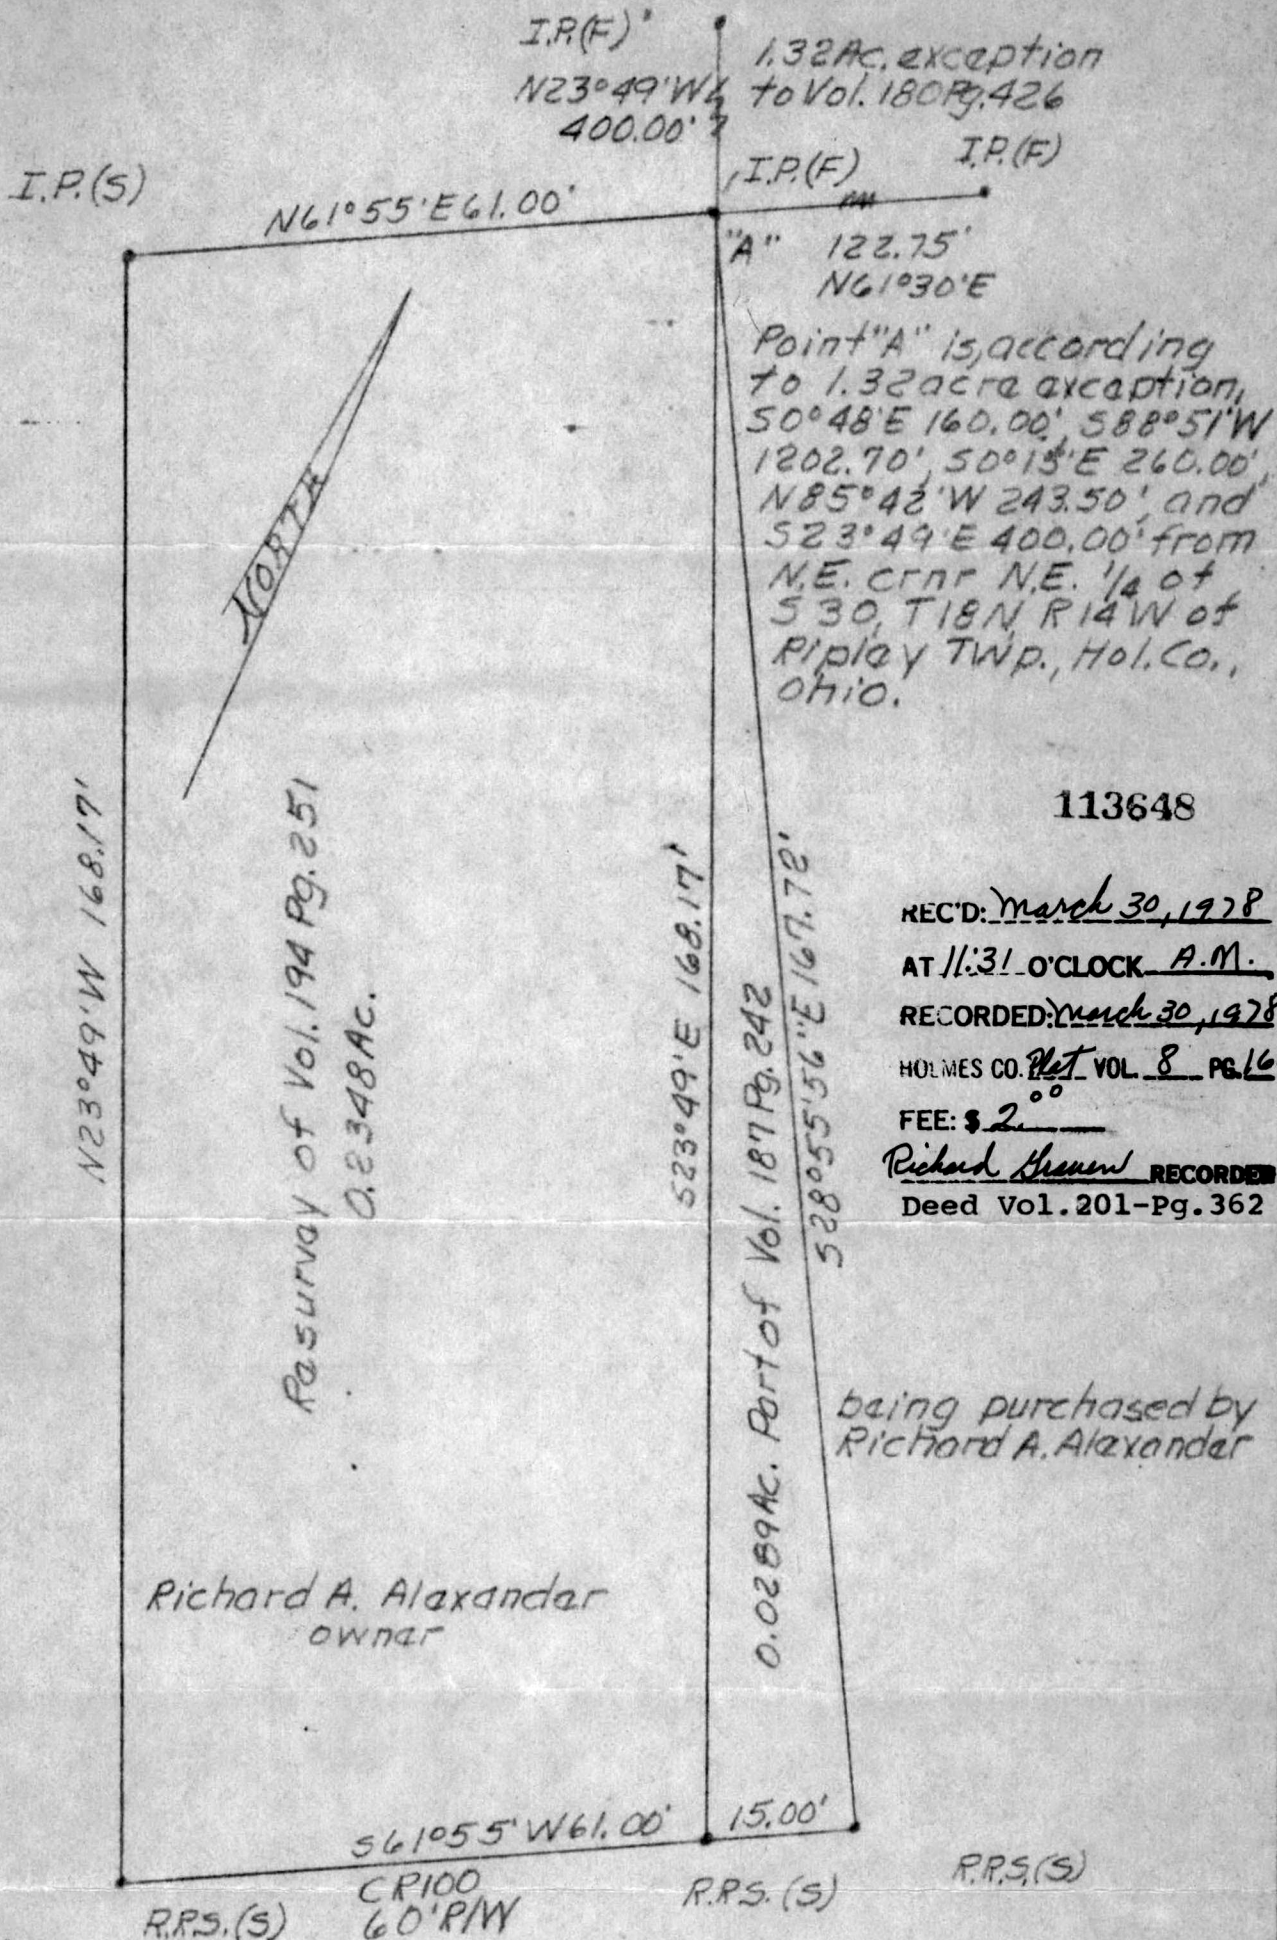 I.P.(F)
N23°49'W
400.00'
1.32Ac. exception
to Vol. 180 Pg. 426
I.P.(S)
N61°55'E 61.00'
I.P.(F)
I.P.(F)
"A"
122.75'
N61°30'E
NORTH
Point "A" is, according
to 1.32 acre exception,
S0°48'E 160.00', S88°51'W
1202.70', S0°15'E 260.00',
N85°42'W 243.50', and
S23°49'E 400.00' from
N.E. crnr N.E. 1/4 of
S 30, T18N R14W of
Ripley Twp., Hol. Co.,
Ohio.
113648
REC'D: March 30, 1978
AT 11:31 O'CLOCK A.M.
RECORDED: March 30, 1978
HOLMES CO. Plat VOL. 8 PG. 16
FEE: $ 2.00
Richard RECORDER
Deed Vol.201-Pg.362
N23°49'W 168.17'
Resurvey of Vol. 194 Pg. 251
0.2348 Ac.
S23°49'E 168.17'
0.0289 Ac. Part of Vol. 187 Pg. 242
S28°55'56"E 167.72'
being purchased by
Richard A. Alexander
Richard A. Alexander
owner
S61°55'W 61.00'
15.00'
CR100
60' R/W
R.R.S.(S)
R.R.S.(S)
R.R.S.(S)